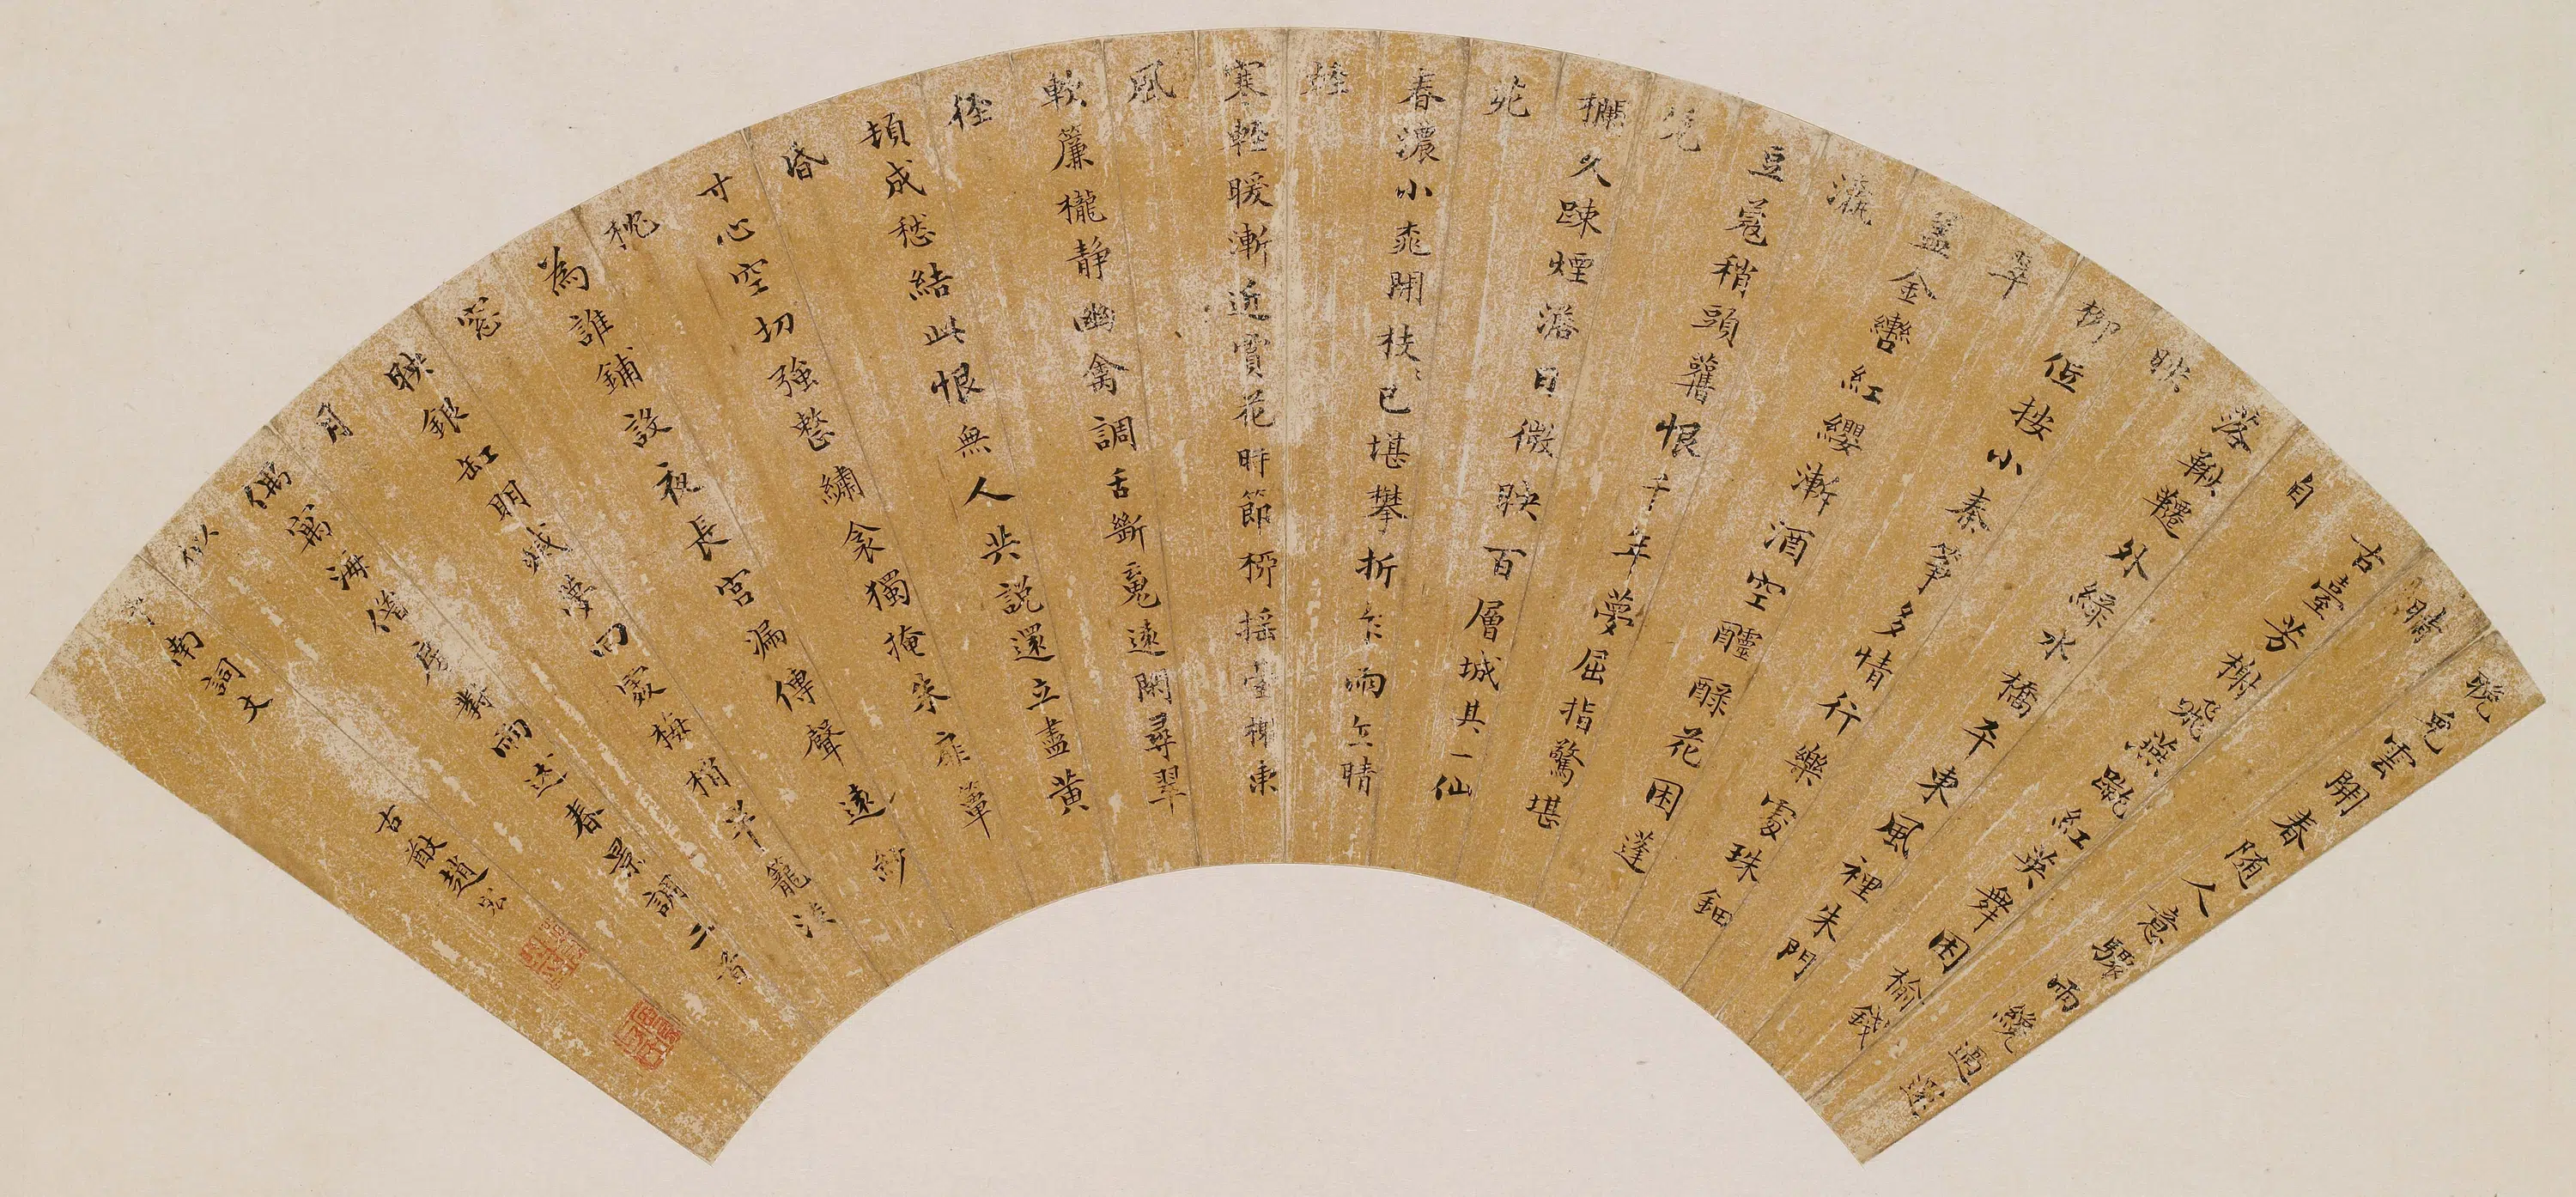 晚兔雲開春随人意驟雨纔過還
晴
古臺芳榭飛燕蹴紅英舞困榆錢
自
落鞦韆外綠水橋平東風裡朱門
映
柳低按小秦箏多情行樂處珠鈿
翠
蓋金轡紅纓漸酒空醽醁花困蓬
瀛
豆蔻稍頭舊恨千年夢屈指驚堪
凭
欄久踈煙澹日微映百層城其一仙
苑
春濃小桃開枝〻已堪攀折乍雨乍晴
輕
寒輕暖漸近賞花時節柳摇臺榭東
風
軟簾櫳静幽禽調舌斷魂遠閑尋翠
徑
頓成愁結此恨無人共説還立盡黃
昏
寸心空切強整繡衾獨掩朱扉簟
枕
為誰鋪設夜長宮漏傳聲遠紗
窓
映銀缸明滅夢回處梅梢半籠淡
月
偶寓海僊房對雨述春景調二首
似
南詞丈
古猷趙宏